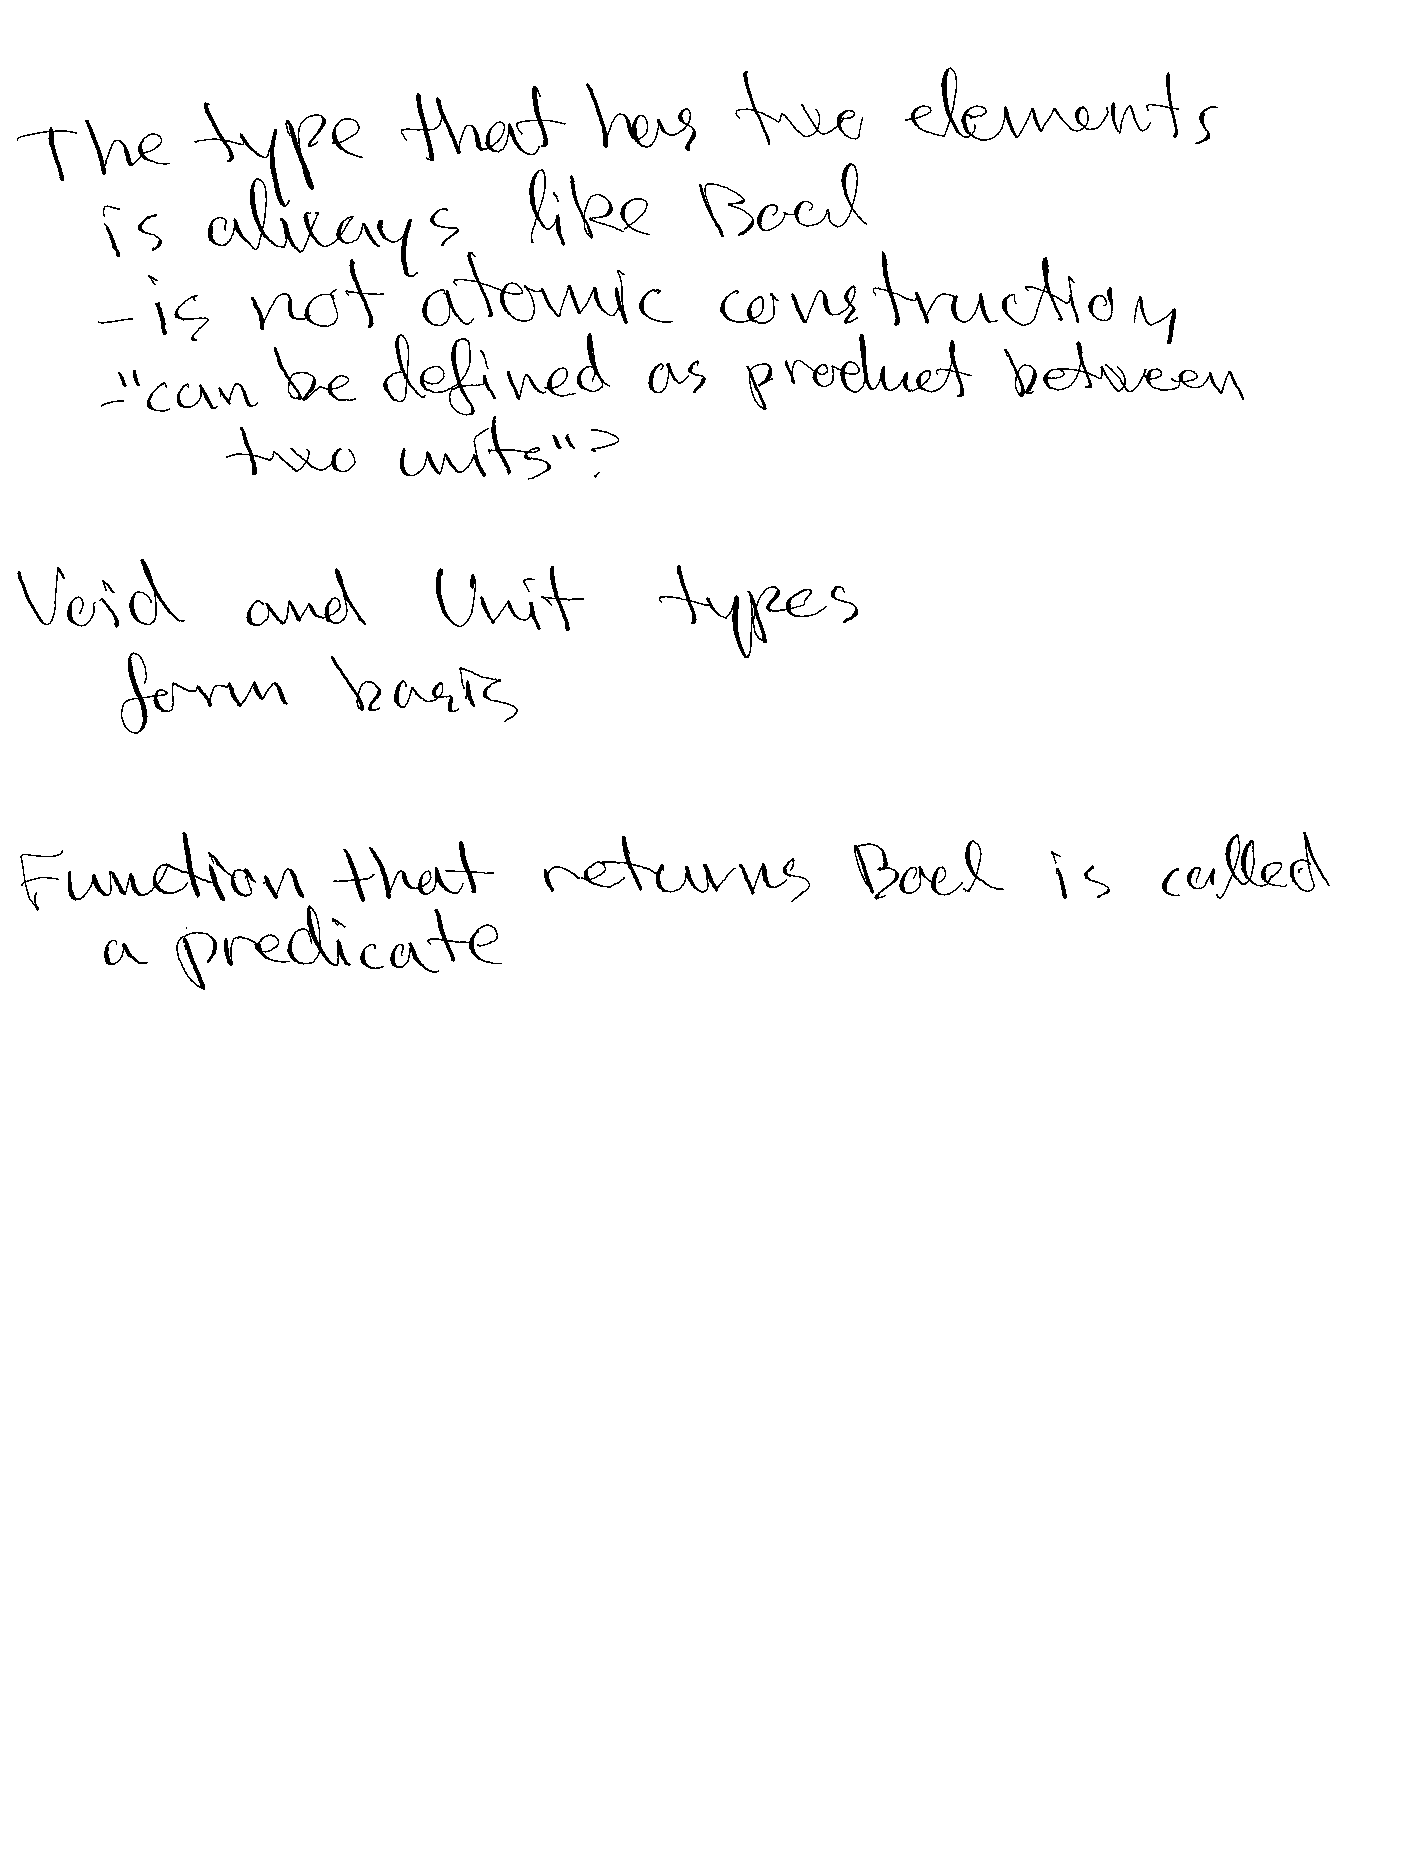 The type that has two elements
is always like Bool
- is not atomic construction
- "can be defined as product between
two units"?
Void and Unit types
form basis
Function that returns Bool is called
a predicate